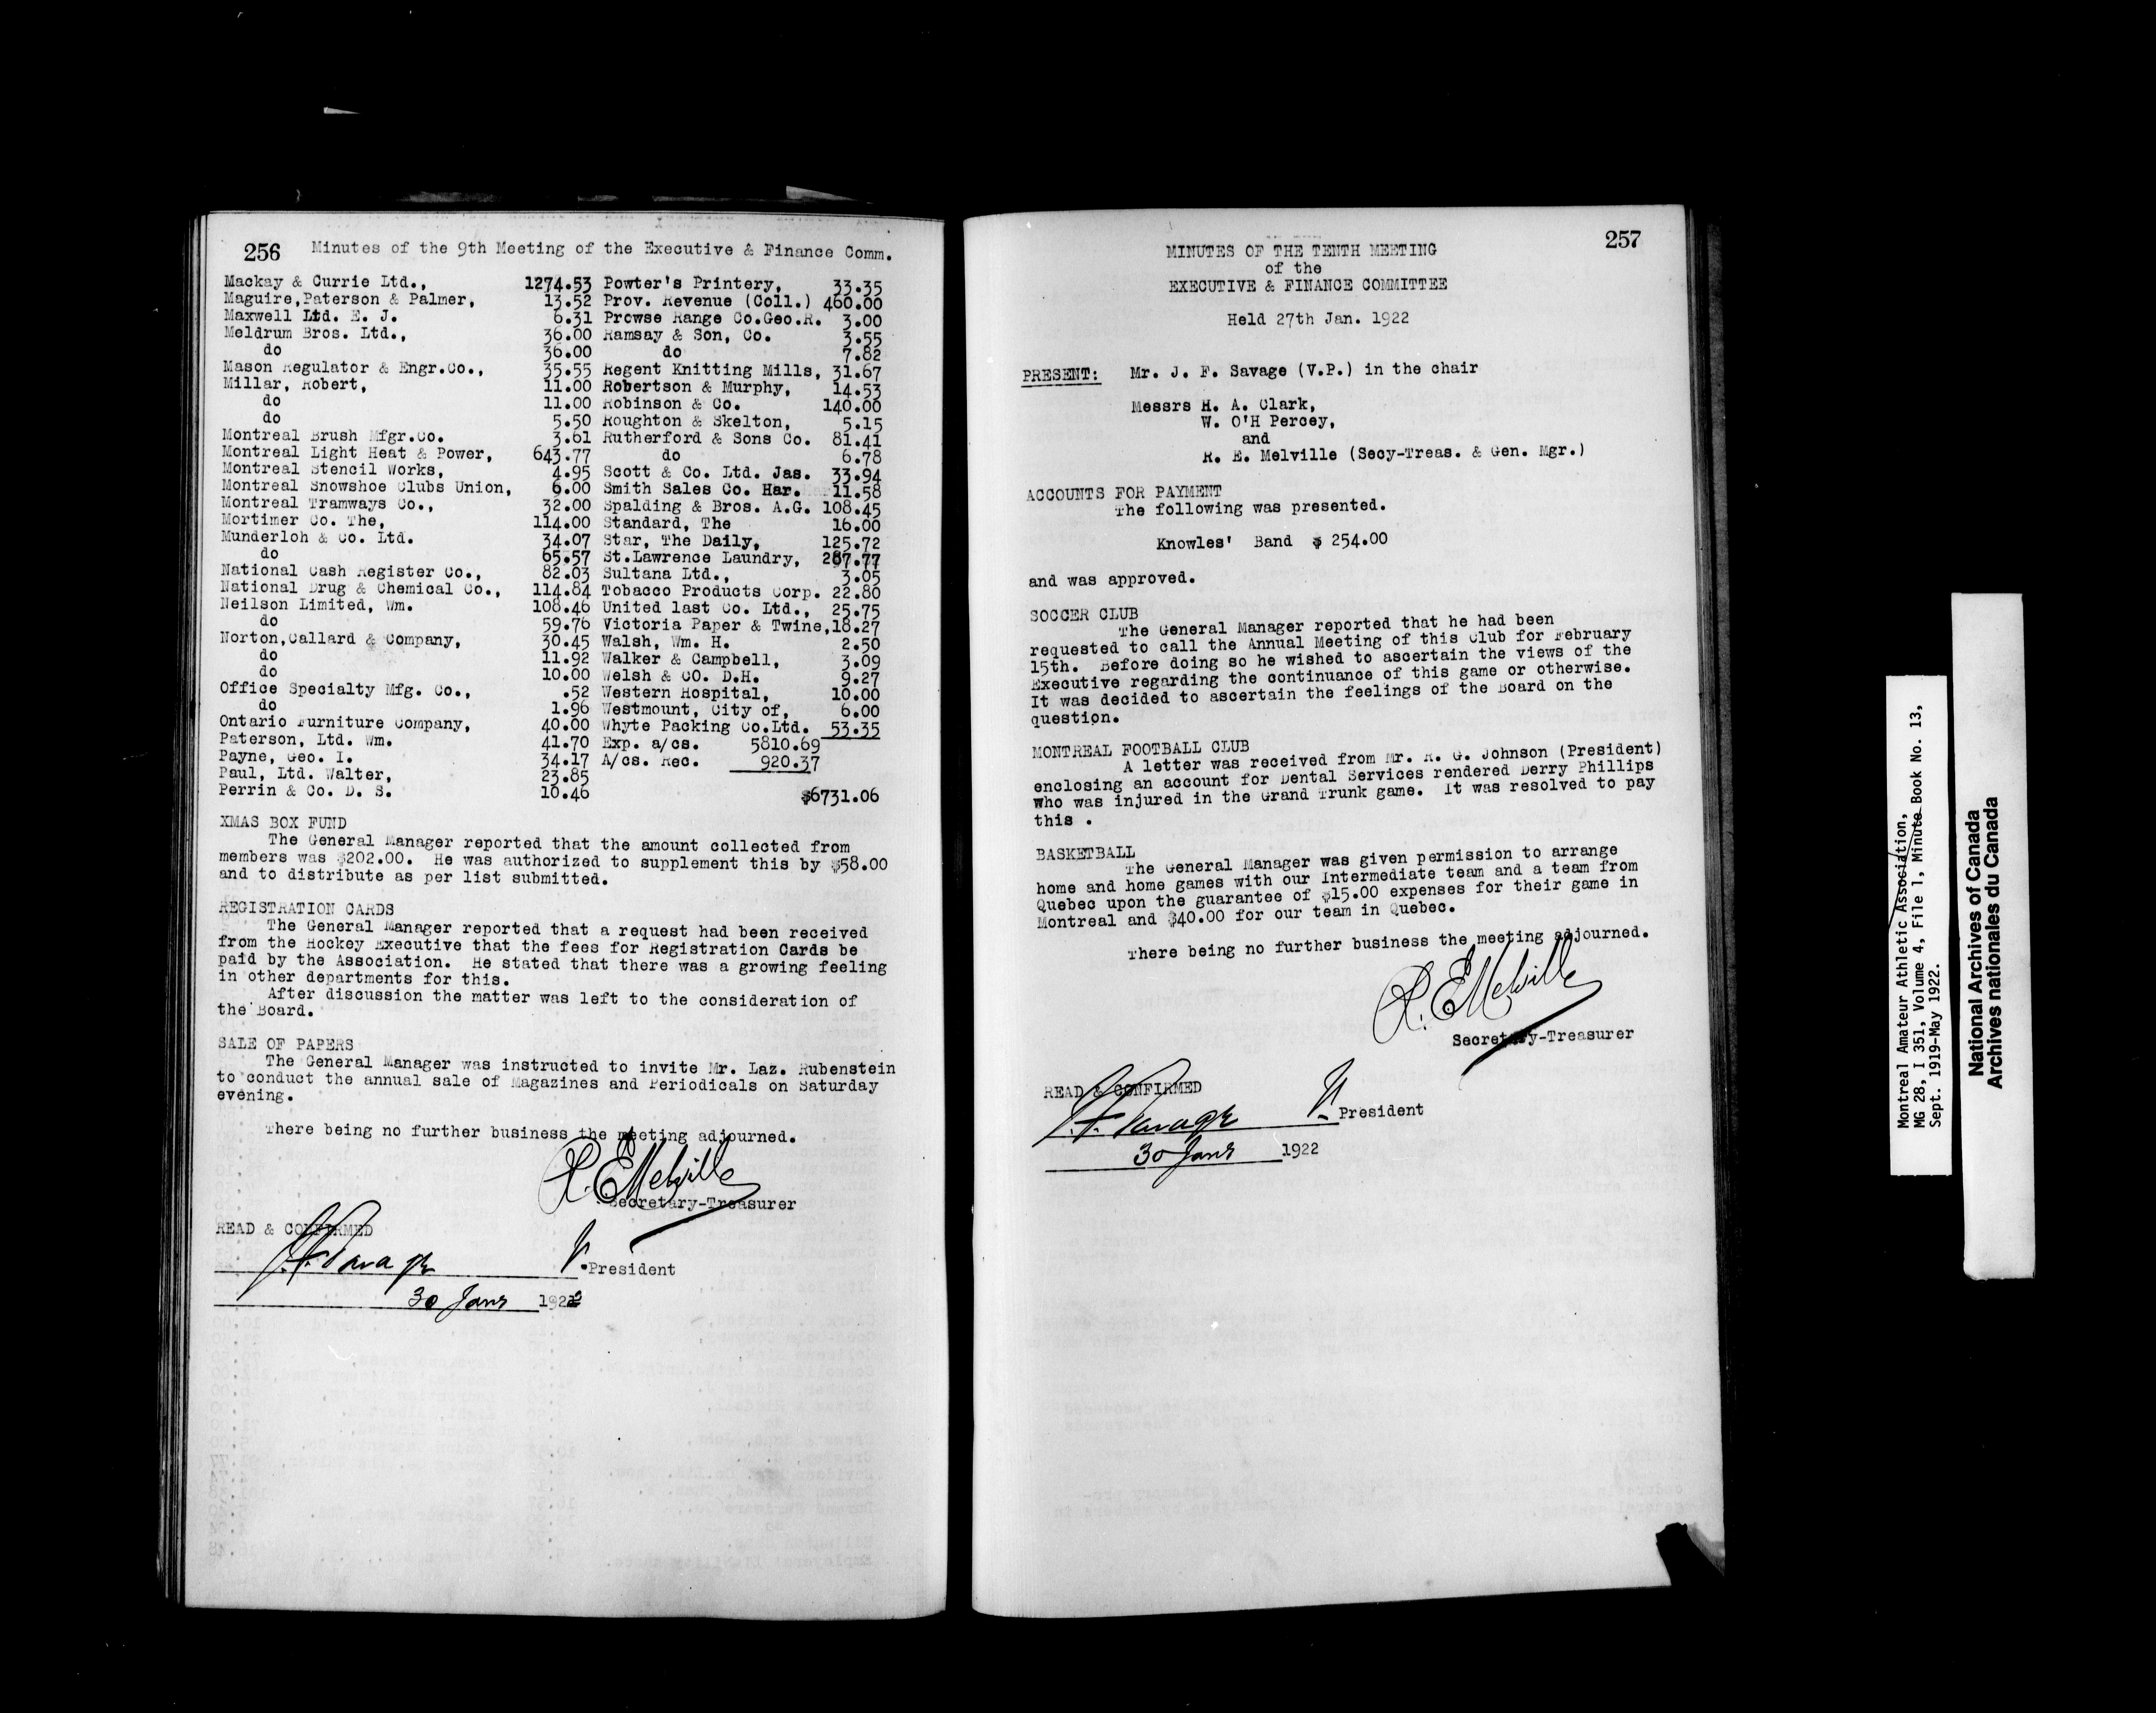 256 Minutes of the 9th Meeting of the Executive & Finance Comm.
Mackay & Currie Ltd., 1274.53 Powter's Printery, 33.35
Maguire,Paterson & Palmer, 13.52 Prov. Revenue (Coll.) 460.00
Maxwell Ltd. E. J. 6.31 Prowse Range Co.Geo.R. 3.00
Meldrum Bros. Ltd., 36.00 Ramsay & Son, Co. 3.55
do 36.00 do 7.82
Mason Regulator & Engr.Co., 35.55 Regent Knitting Mills, 31.67
Millar, Robert, 11.00 Robertson & Murphy, 14.53
do 11.00 Robinson & Co. 140.00
do 5.50 Roughton & Skelton, 5.15
Montreal Brush Mfgr.Co. 3.61 Rutherford & Sons Co. 81.41
Montreal Light Heat & Power, 643.77 do 6.78
Montreal Stencil Works, 4.95 Scott & Co. Ltd. Jas. 33.94
Montreal Snowshoe Clubs Union, 6.00 Smith Sales Co. Har. 11.58
Montreal Tramways Co., 32.00 Spalding & Bros. A.G. 108.45
Mortimer Co. The, 114.00 Standard, The 16.00
Munderloh & Co. Ltd. 34.07 Star, The Daily, 125.72
do 65.57 St.Lawrence Laundry, 287.77
National Cash Register Co., 82.03 Sultana Ltd., 3.05
National Drug & Chemical Co., 114.84 Tobacco Products Corp. 22.80
Neilson Limited, Wm. 108.46 United last Co. Ltd., 25.75
do 59.76 Victoria Paper & Twine,18.27
Norton,Callard & Company, 30.45 Walsh, Wm. H. 2.50
do 11.92 Walker & Campbell, 3.09
do 10.00 Welsh & CO. D.H. 9.27
Office Specialty Mfg. Co., .52 Western Hospital, 10.00
do 1.96 Westmount, City of, 6.00
Ontario Furniture Company, 40.00 Whyte Packing Co.Ltd. 53.35
Paterson, Ltd. Wm. 41.70 Exp. a/cs. 5810.69
Payne, Geo. I. 34.17 A/cs. Rec. 920.37
Paul, Ltd. Walter, 23.85
Perrin & Co. D. S. 10.46 $6731.06
XMAS BOX FUND
The General Manager reported that the amount collected from
members was $202.00. He was authorized to supplement this by $58.00
and to distribute as per list submitted.
REGISTRATION CARDS
The General Manager reported that a request had been received
from the Hockey Executive that the fees for Registration Cards be
paid by the Association. He stated that there was a growing feeling
in other departments for this.
After discussion the matter was left to the consideration of
the Board.
SALE OF PAPERS
The General Manager was instructed to invite Mr. Laz. Rubenstein
to conduct the annual sale of Magazines and Periodicals on Saturday
evening.
There being no further business the meeting adjourned.
R. E. Melville
Secretary-Treasurer
READ & CONFIRMED
J. F. Savage V. President
30 Jany 1922
257
MINUTES OF THE TENTH MEETING
of the
EXECUTIVE & FINANCE COMMITTEE
Held 27th Jan. 1922
PRESENT: Mr. J. F. Savage (V.P.) in the chair
Messrs H. A. Clark,
W. O'H Percey,
and
R. E. Melville (Secy-Treas. & Gen. Mgr.)
ACCOUNTS FOR PAYMENT
The following was presented.
Knowles' Band $ 254.00
and was approved.
SOCCER CLUB
The General Manager reported that he had been
requested to call the Annual Meeting of this Club for February
15th. Before doing so he wished to ascertain the views of the
Executive regarding the continuance of this game or otherwise.
It was decided to ascertain the feelings of the Board on the
question.
MONTREAL FOOTBALL CLUB
A letter was received from Mr. R. G. Johnson (President)
enclosing an account for Dental Services rendered Derry Phillips
who was injured in the Grand Trunk game. It was resolved to pay
this .
BASKETBALL
The General Manager was given permission to arrange
home and home games with our Intermediate team and a team from
Quebec upon the guarantee of $15.00 expenses for their game in
Montreal and $40.00 for our team in Quebec.
There being no further business the meeting adjourned.
R. E. Melville
Secretary-Treasurer
READ & CONFIRMED
J. F. Savage V. President
30 Jany 1922
Montreal Amateur Athletic Association,
MG 28, I 351, Volume 4, File 1, Minute Book No. 13,
Sept. 1919-May 1922.
National Archives of Canada
Archives nationales du Canada